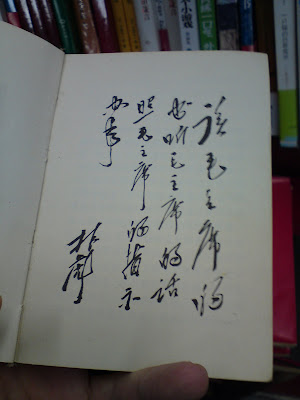 读毛主席的
书听毛主席的话
照毛主席的指示
办事
林彪
小游戏